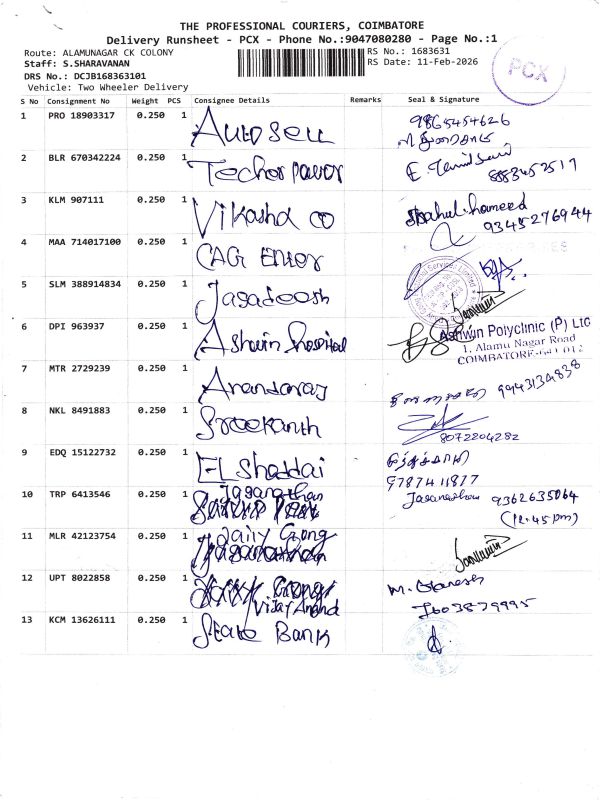 THE PROFESSIONAL COURIERS, COIMBATORE
Delivery Runsheet - PCX - Phone No.:9047080280 - Page No.:1
Route: ALAMUNAGAR CK COLONY
RS No.: 1683631
Staff: S.SHARAVANAN
RS Date: 11-Feb-2026
PCX
DRS No.: DCJB168363101
Vehicle: Two Wheeler Delivery
S No Consignment No Weight PCS Consignee Details Remarks Seal & Signature
1 PRO 18903317 0.250 1 9865454626
2 BLR 670342224 0.250 1 8883452517
3 KLM 907111 0.250 1 Vikasha co Shahul hameed
9345276944
4 MAA 714017100 0.250 1 CAG Enter
5 SLM 388914834 0.250 1 Jagadeesh
6 DPI 963937 0.250 1 Ashwin hospital Ashwin Polyclinic (P) Ltd
1, Alamu Nagar Road
COIMBATORE-641 012
7 MTR 2729239 0.250 1 Anandaraj 9943134838
8 NKL 8491883 0.250 1 Sreekanth
8072204282
9 EDQ 15122732 0.250 1 EL Shaddai
9787411877
10 TRP 6413546 0.250 1 Jaganathan 9362635064
(12.45pm)
11 MLR 42123754 0.250 1
12 UPT 8022858 0.250 1 Vijay Anand M. Ganesh
13 KCM 13626111 0.250 1 State Bank